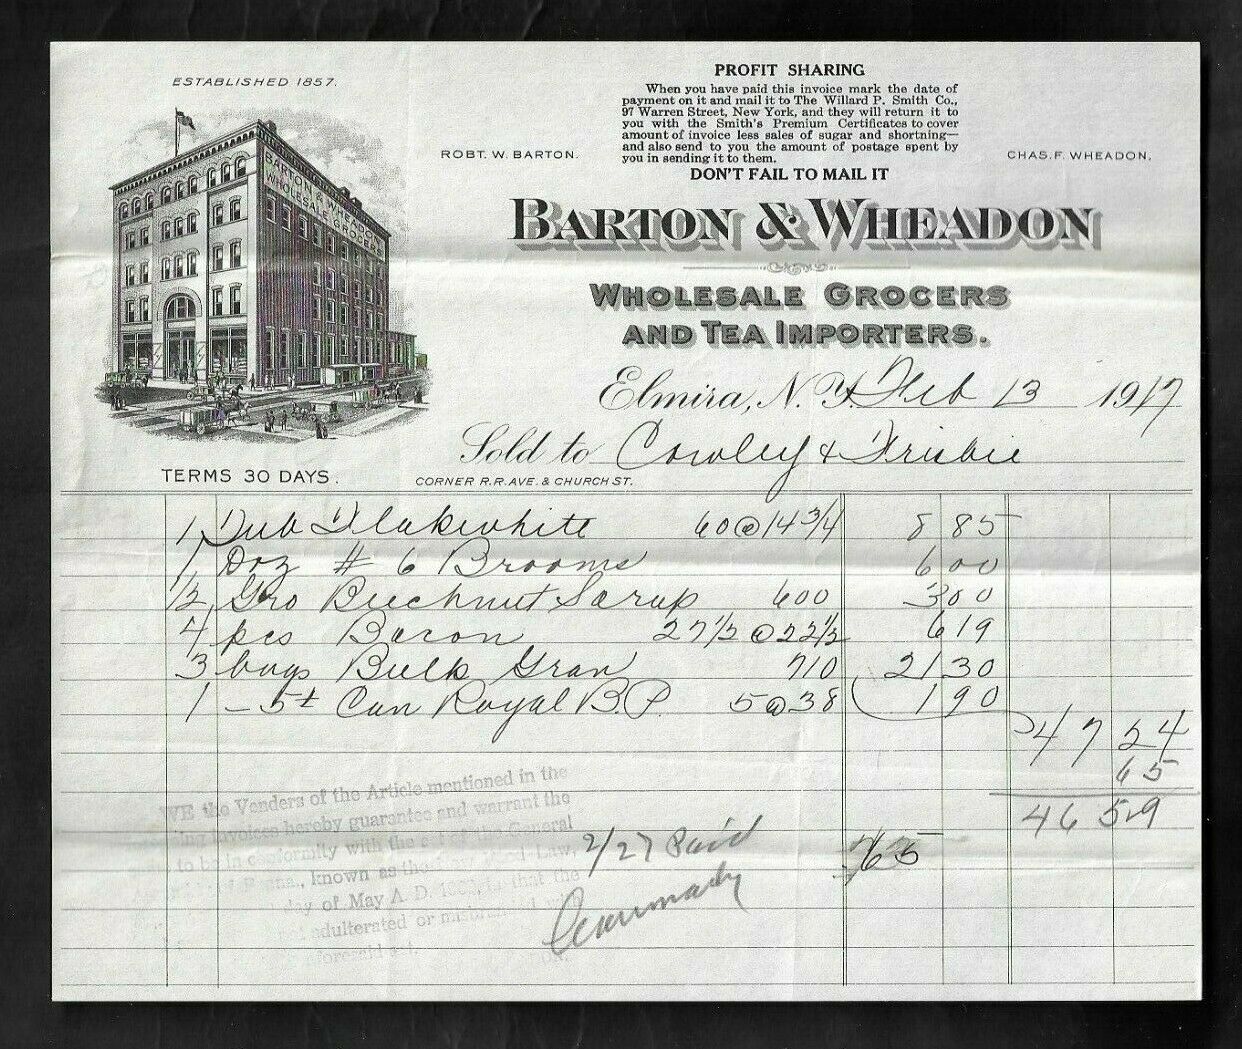 ESTABLISHED 1857.
BARTON & WHEADON
WHOLESALE GROCERS
PROFIT SHARING
When you have paid this invoice mark the date of
payment on it and mail it to The Willard P. Smith Co.,
97 Warren Street, New York, and they will return it to
you with the Smith's Premium Certificates to cover
amount of invoice less sales of sugar and shortning—
and also send to you the amount of postage spent by
you in sending it to them.
DON'T FAIL TO MAIL IT
ROBT. W. BARTON.
CHAS. F. WHEADON.
BARTON & WHEADON
WHOLESALE GROCERS
AND TEA IMPORTERS.
Elmira, N. Y. Feb 13 1917
Sold to Cowley & Frisbie
TERMS 30 DAYS.
CORNER R.R. AVE. & CHURCH ST.
1 Tub Flakewhite 60@14 3/4 8 85
1 Doz # 6 Brooms 6 00
1/2 Gro Beechnut 600 3 00
4 pcs Bacon 27 1/2 @ 22 1/2 6 19
3 bags Bulk Gran 710 21 30
1 - 5# Can Royal B.P. 5@38 1 90
47 24
65
46 59
WE the Venders of the Article mentioned in the
ing invoices hereby guarantee and warrant the
to be in conformity with the of the General
known as the Law,
day of May A. D. that the
adulterated or
aforesaid act.
2/27 Paid
65